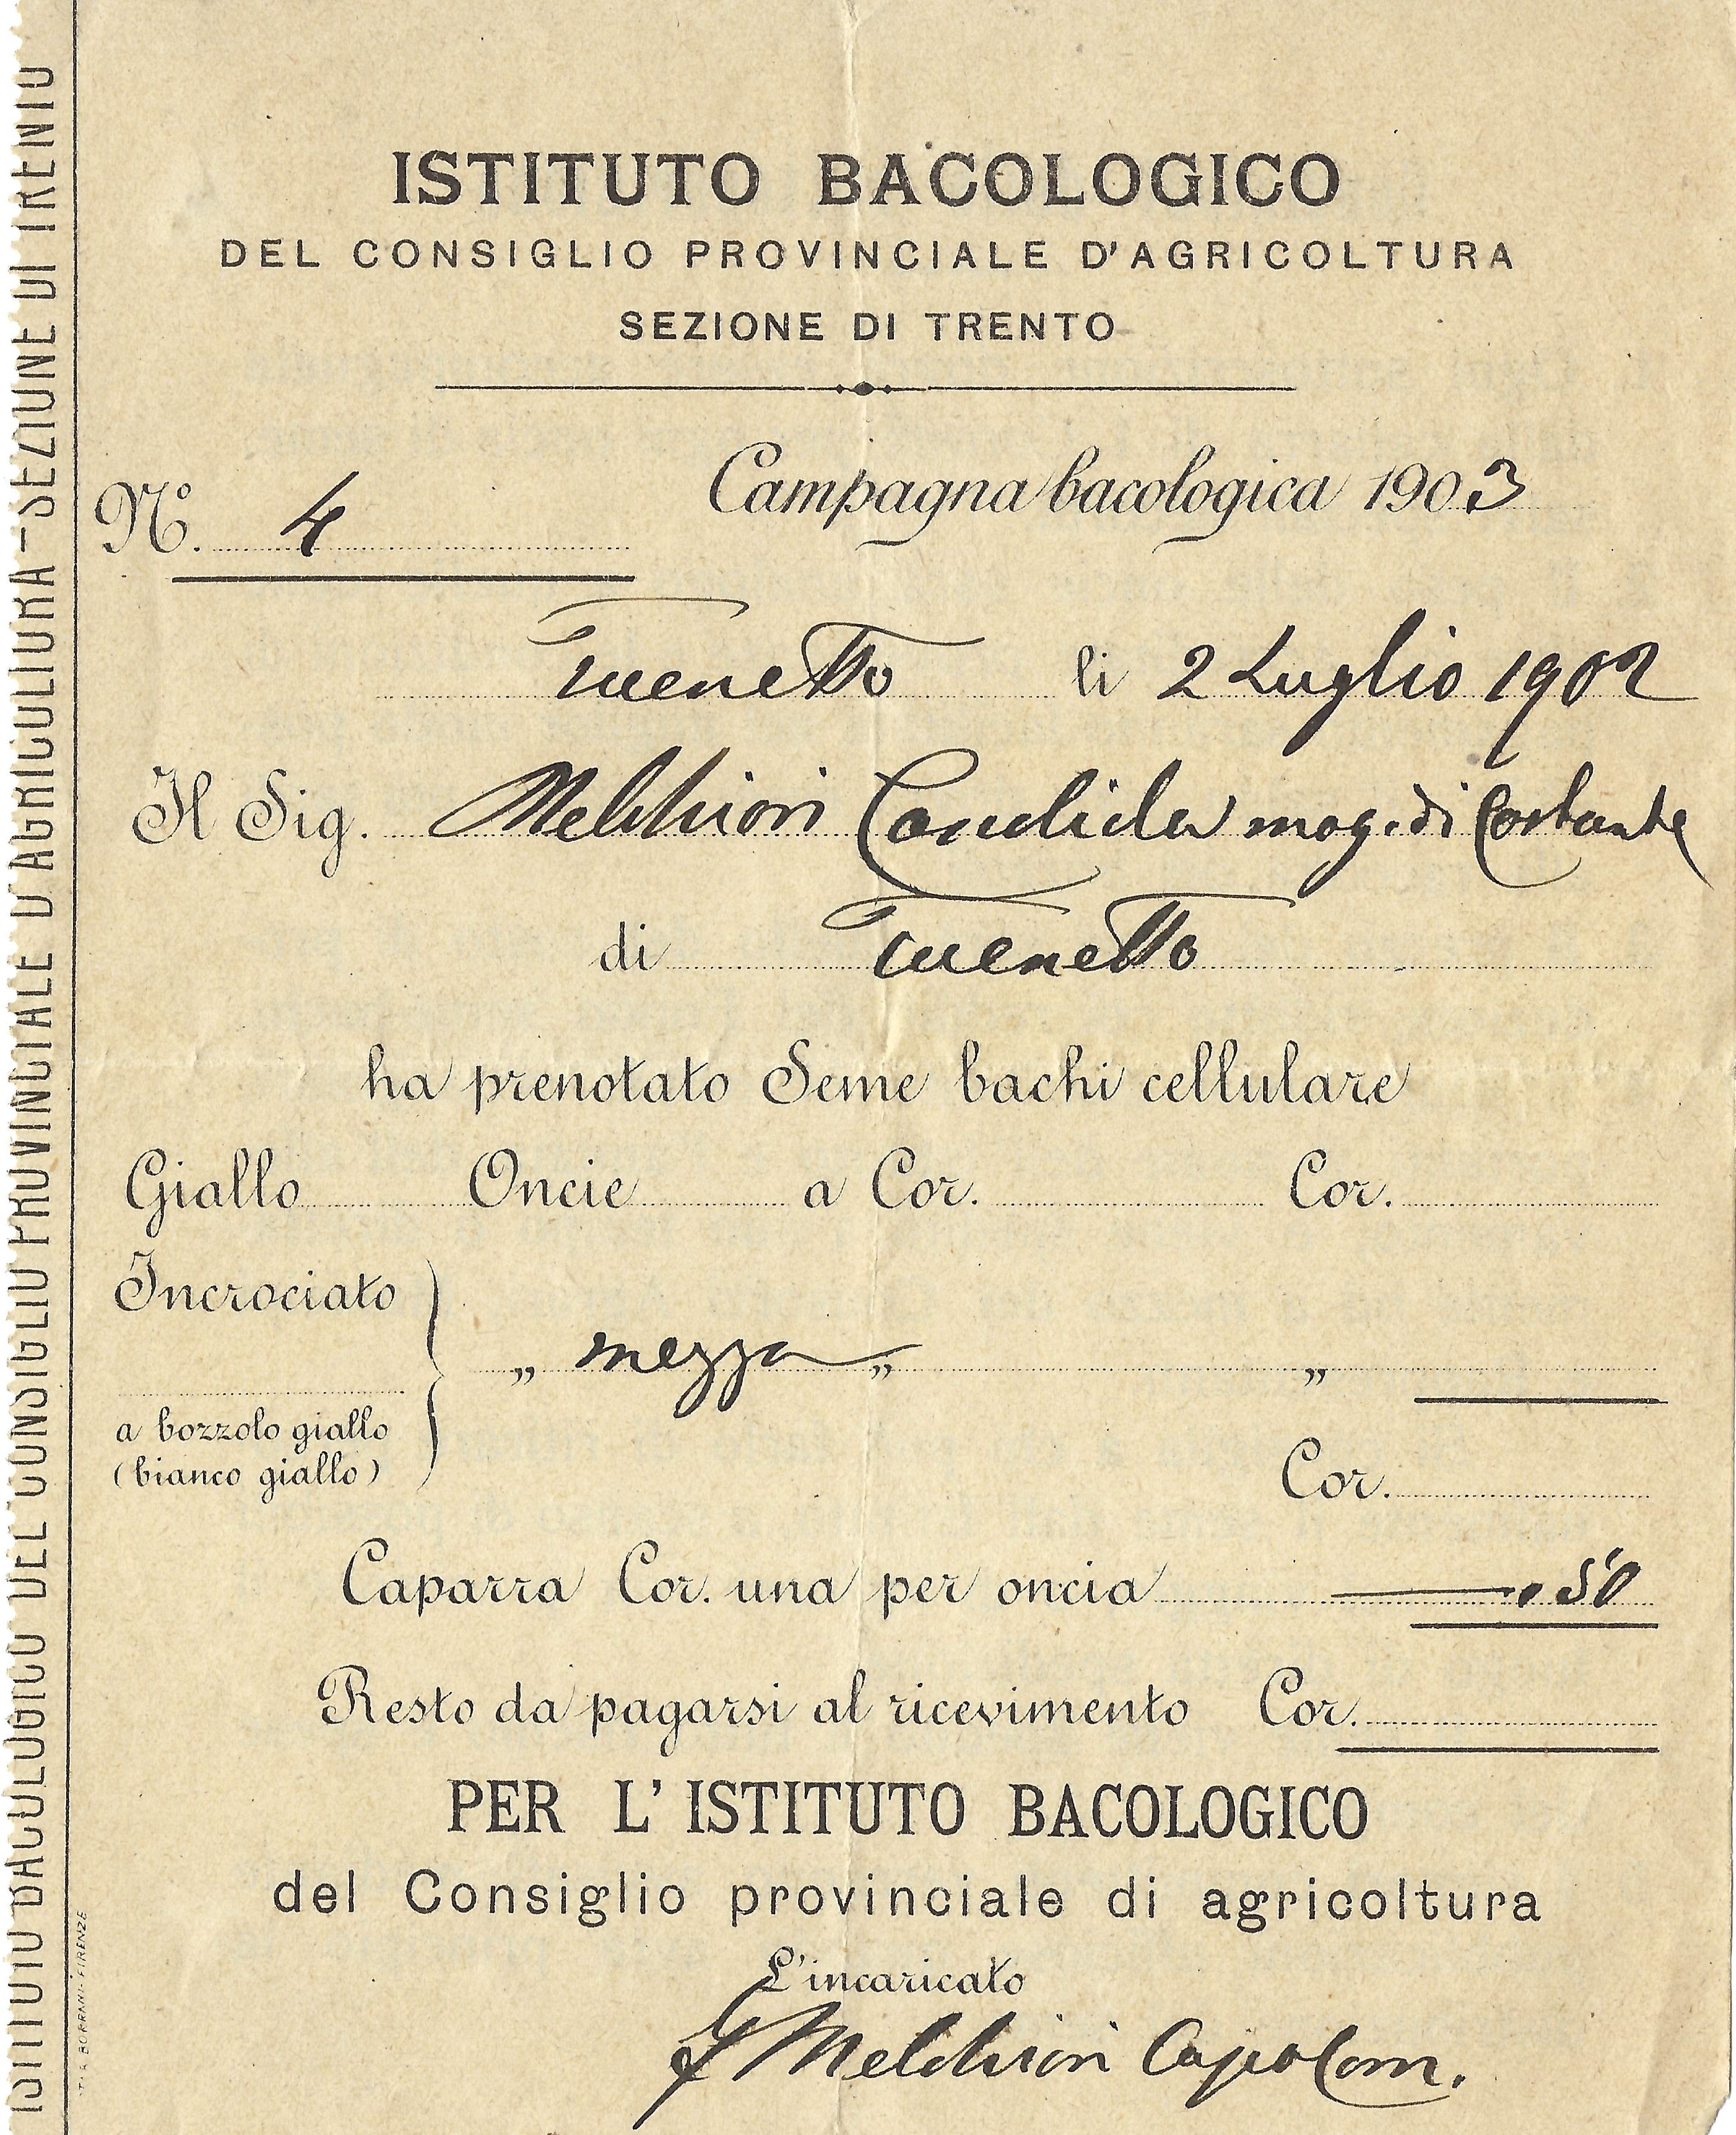 ISTITUTO BACOLOGICO
DEL CONSIGLIO PROVINCIALE D'AGRICOLTURA
SEZIONE DI TRENTO
N.° 4
Campagna bacologica 1903
Tuenetto li 2 Luglio 1902
Il Sig. Melchiori Candida mog. di Costante
di Tuenetto
ha prenotato Seme bachi cellulare
Giallo Oncie a Cor. Cor.
Incrociato
„ mezza „ „
a bozzolo giallo
(bianco giallo)
Cor.
Caparra Cor. una per oncia 50
Resto da pagarsi al ricevimento Cor.
PER L'ISTITUTO BACOLOGICO
del Consiglio provinciale di agricoltura
L'incaricato
Melchiori Capo Com.
ISTITUTO BACOLOGICO DEL CONSIGLIO PROVINCIALE D'AGRICOLTURA - SEZIONE DI TRENTO
FIRENZE